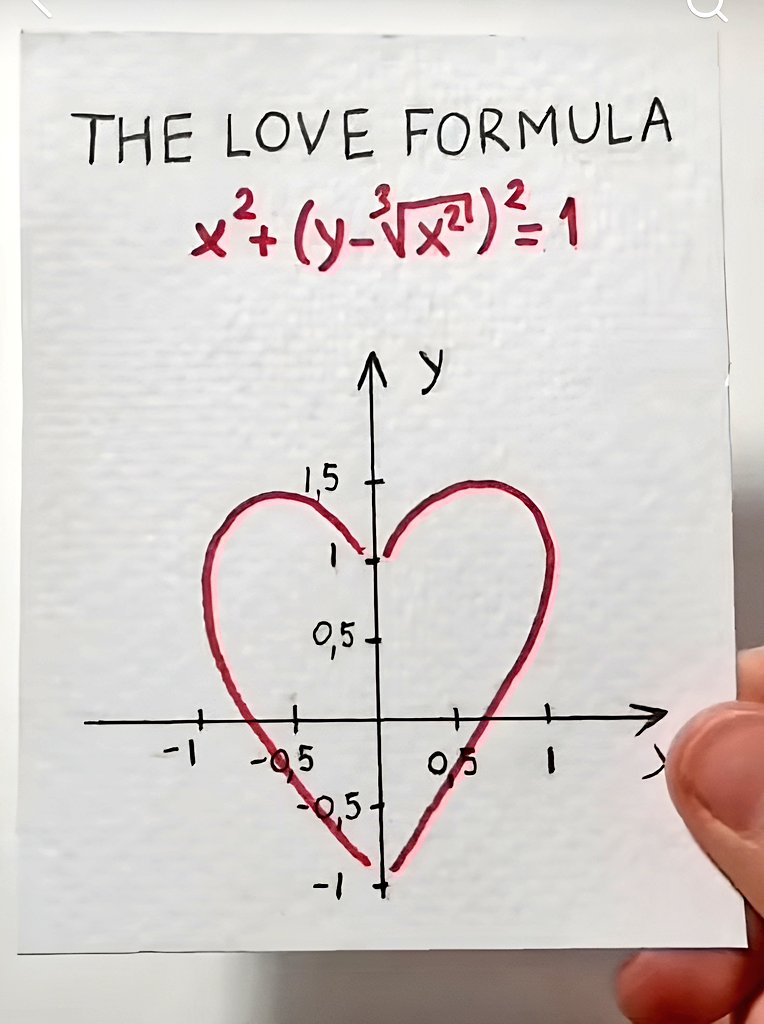 THE LOVE FORMULA
x² + (y - ∛x²)² = 1
y
1,5
1
0,5
-1 -0,5 0,5 1
-0,5
-1